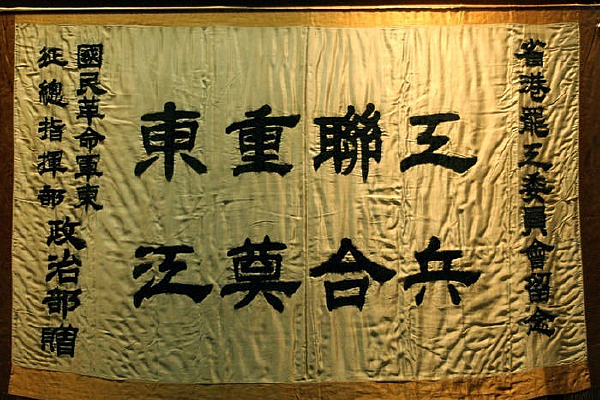 省港罷工委員會留念
工兵
聯合
重奠
東江
國民革命軍東
征總指揮部政治部贈